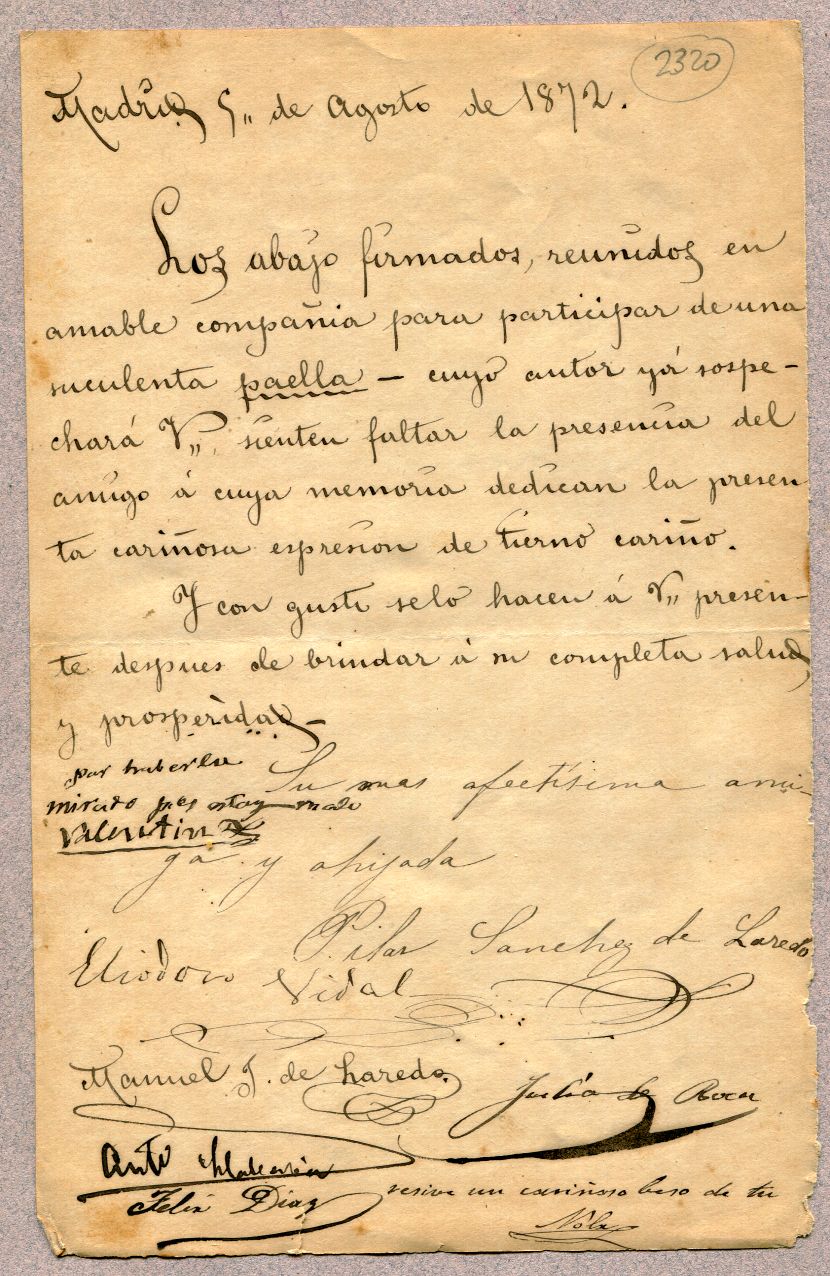 2320
Madrid 5,, de Agosto de 1872.
Los abajo firmados, reunidos en
amable compañia para participar de una
suculenta paella — cuyo autor yá sospe-
chará V,, sienten faltar la presencia del
amigo á cuya memoria dedican la presen-
ta cariñosa espresion de tierno cariño.
Y con gusto selo hacen á V,, presen-
te despues de brindar á su completa salud
y prosperidad—
por haberlm
mirado pues estoy malo
Valentin
Su mas afectísima ami-
ga y ahijada
Pilar Sanchez de Laredo
Eliodoro Vidal
Manuel J. de Laredo
Julia de Roca
Antº
Felix Diaz
resive un cariñoso beso de tu
Nola